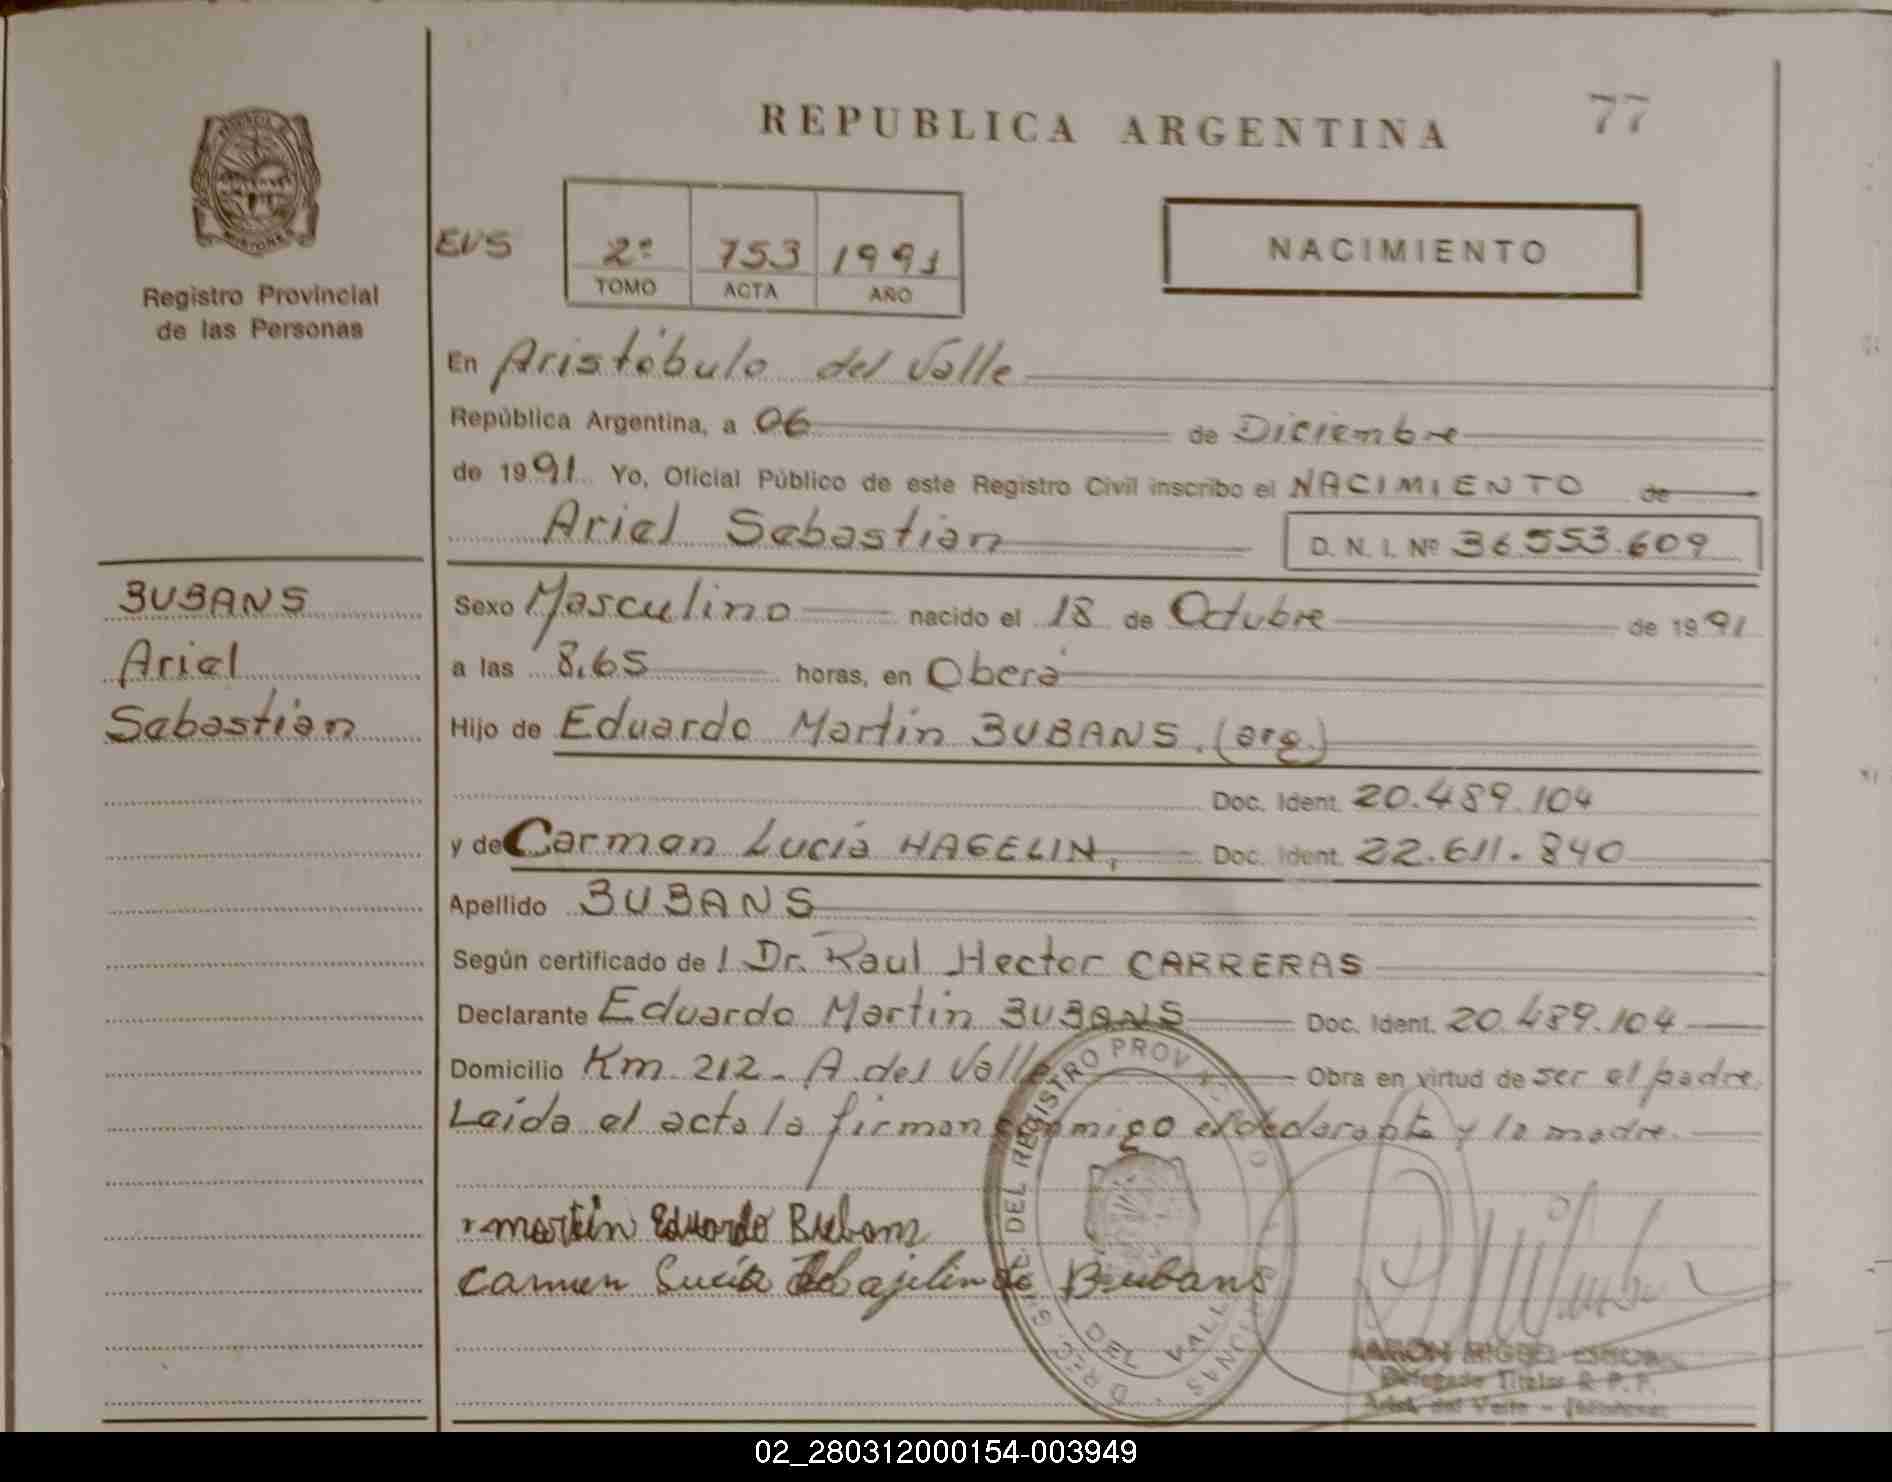 REPUBLICA ARGENTINA
77
Registro Provincial
de las Personas
EVS
2º 753 1991
TOMO ACTA AÑO
NACIMIENTO
En Aristóbulo del Valle
República Argentina, a 06 de Diciembre
de 1991. Yo, Oficial Público de este Registro Civil inscribo el NACIMIENTO de
Ariel Sebastian
D. N. I. Nº 36.553.609
BUBANS
Ariel
Sebastian
Sexo Masculino nacido el 18 de Octubre de 1991
a las 8,65 horas, en Oberá
Hijo de Eduardo Martin BUBANS. (arg.)
Doc. Ident. 20.489.104
y de Carmen Lucía HAGELIN, Doc. Ident. 22.611.840
Apellido BUBANS
Según certificado de l Dr. Raul Hector CARRERAS
Declarante Eduardo Martin BUBANS Doc. Ident. 20.489.104
Domicilio Km 212 - A. del Valle Obra en virtud de ser el padre.
Leida el acta la firman conmigo el declarante y la madre.
martin Eduardo Bubans
Carmen Lucía de Bubans
DEL REGISTRO PROV
DEL VALLE
Delegado Titular R. P. P.
Arist. del Valle - Misiones
02_280312000154-003949